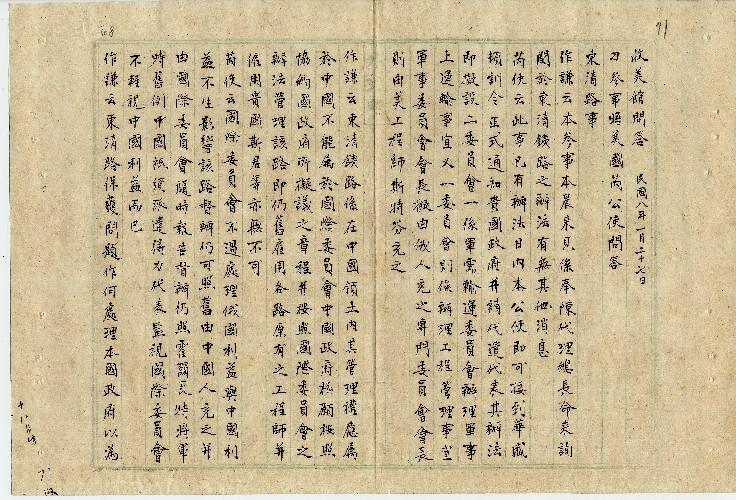 收美館問答　民國八年一月二十七日
刁參事晤美國芮公使問答
東清路事
作謙云本參事本晨來見係奉陳代理總長命來詢
關於東清鐵路之辦法有無其他消息
芮使云此事已有辦法日內本公使即可接到華盛
頓訓令正式通知貴國政府并請代遣代表其辦法
即擬設二委員會一係軍需輸運委員會辦理軍事
上運輸事宜又一委員會則係辦理工程管理事宜
軍事委員會會長擬由俄人充之專門委員會會長
則由美工程師斯特芬充之
作謙云東清鐵路係在中國領土內其管理權應屬
於中國不能屬於國際委員會中國政府極願按照
協約國政府所擬議之章程并按照國際委員會之
辦法管理該路即仍舊雇用各路原有之工程師并
僱用貴國斯君等亦無不可
芮使云國際委員會不過處理俄國利益與中國利
益不生影響該路督辦仍可照舊由中國人充之并
由國際委員會隨時報告督辦仍照霍爾瓦特將軍
時舊例中國祇須派遣得力代表監視國際委員會
不輕視中國利益而已
作謙云東清路保護問題作何處理本國政府以為